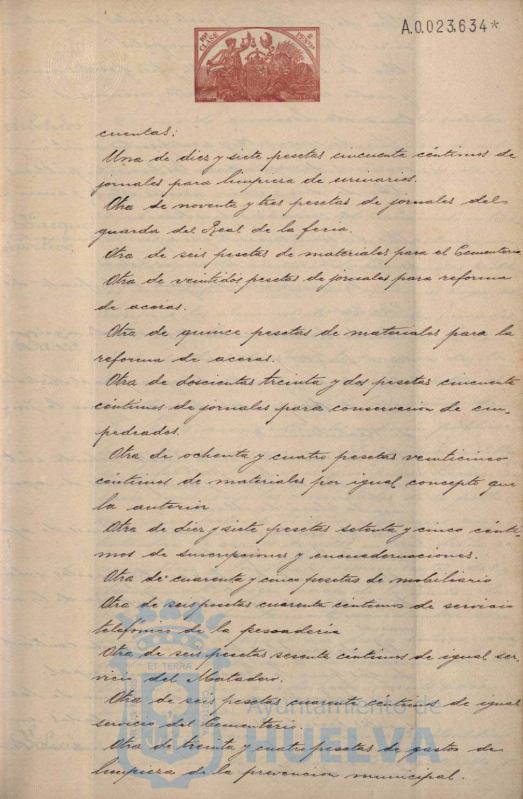 A.0.023.634*
10ª CLASE
2 PESETAS
cuentas:
Una de diez y siete pesetas cincuenta céntimos de
jornales para limpieza de urinarios.
Otra de noventa y tres pesetas de jornales del
guarda del Real de la feria.
Otra de seis pesetas de materiales para el Cementerio
Otra de veintidos pesetas de jornales para reforma
de aceras.
Otra de quince pesetas de materiales para la
reforma de aceras.
Otra de doscientas treinta y dos pesetas cincuenta
céntimos de jornales para conservacion de em-
pedrados.
Otra de ochenta y cuatro pesetas veinticinco
céntimos de materiales por igual concepto que
la anterior
Otra de diez y siete pesetas setenta y cinco cénti-
mos de suscripciones y encuadernaciones.
Otra de cuarenta y cinco pesetas de mobiliario
Otra de seis pesetas cuarenta céntimos de servicio
telefónico de la pescadería
Otra de seis pesetas sesenta céntimos de igual ser-
vicio del Matadero.
Otra de seis pesetas cuarenta céntimos de igual
servicio del Cementerio.
Otra de treinta y cuatro pesetas de gastos de
limpieza de la prevencion municipal.
ET TERRA
Ayuntamiento de
HUELVA